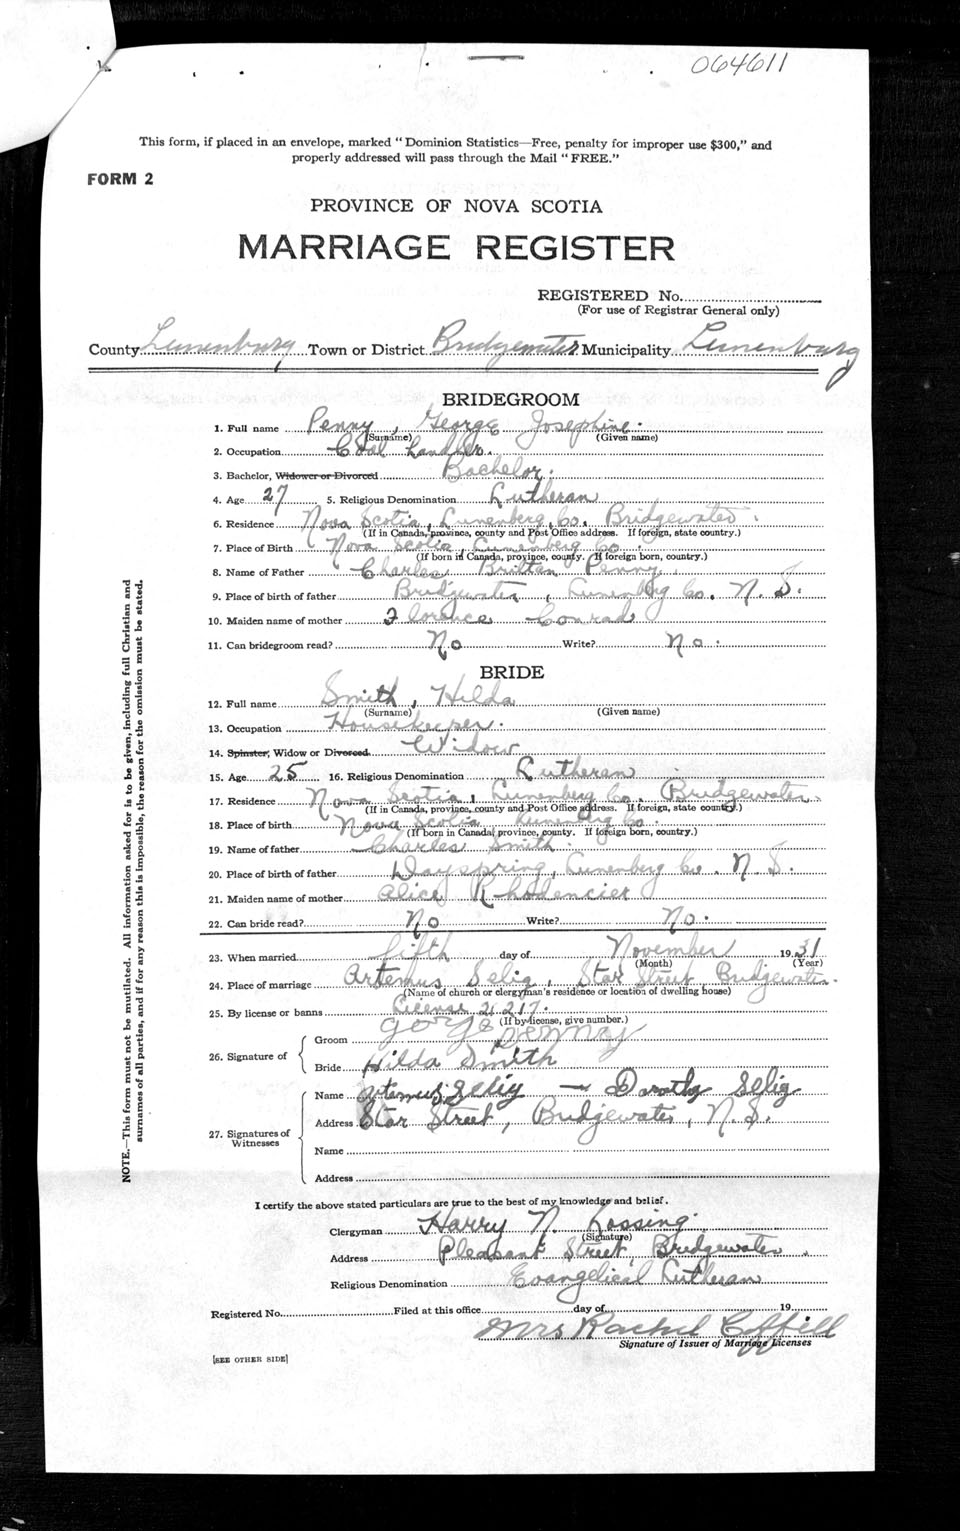 064611
This form, if placed in an envelope, marked "Dominion Statistics—Free, penalty for improper use $300," and
properly addressed will pass through the Mail "FREE."
FORM 2
PROVINCE OF NOVA SCOTIA
MARRIAGE REGISTER
REGISTERED No.
(For use of Registrar General only)
County Lunenburg Town or District Bridgewater Municipality Lunenburg
BRIDEGROOM
1. Full name Penny, George Josephine.
(Surname) (Given name)
2. Occupation Coal Handler.
3. Bachelor, Widower or Divorced Bachelor.
4. Age 27 5. Religious Denomination Lutheran
6. Residence Nova Scotia, Lunenberg, Co. Bridgewater.
(If in Canada, province, county and Post Office address. If foreign, state country.)
7. Place of Birth Nova Scotia Lunenberg Co.
(If born in Canada, province, county. If foreign born, country.)
8. Name of Father Charles Brittan Penny.
9. Place of birth of father Bridgewater, Lunenberg Co. N. S.
10. Maiden name of mother Florence Conrad
11. Can bridegroom read? No Write? No.
BRIDE
12. Full name Smith, Hilda
(Surname) (Given name)
13. Occupation Housekeeper.
14. Spinster, Widow or Divorced. Widow
15. Age 25 16. Religious Denomination Lutheran
17. Residence Nova Scotia, Lunenberg Co. Bridgewater.
(If in Canada, province, county and Post Office address. If foreign, state country.)
18. Place of birth Nova Scotia Lunenberg Co.
(If born in Canada, province, county. If foreign born, country.)
19. Name of father Charles Smith.
20. Place of birth of father Dayspring, Lunenberg Co. N. S.
21. Maiden name of mother Alice Rhodencier
22. Can bride read? No Write? No.
23. When married fifth day of November 1931
(Month) (Year)
24. Place of marriage Artemus Selig, Star Street Bridgewater.
(Name of church or clergyman's residence or location of dwelling house)
25. By license or banns License 21217.
(If by license, give number.)
26. Signature of Groom George Penny
Bride Hilda Smith
27. Signatures of Witnesses
Name Artemus Selig — Dorothy Selig
Address Star Street, Bridgewater, N. S.
Name
Address
I certify the above stated particulars are true to the best of my knowledge and belief.
Clergyman Harry N. Lossing.
(Signature)
Address Pleasant Street, Bridgewater.
Religious Denomination Evangelical Lutheran
Registered No. Filed at this office day of 19
Mrs Rachel
Signature of Issuer of Marriage Licenses
[SEE OTHER SIDE]
NOTE.—This form must not be mutilated. All information asked for is to be given, including full Christian and
surnames of all parties, and if for any reason this is impossible, the reason for the omission must be stated.